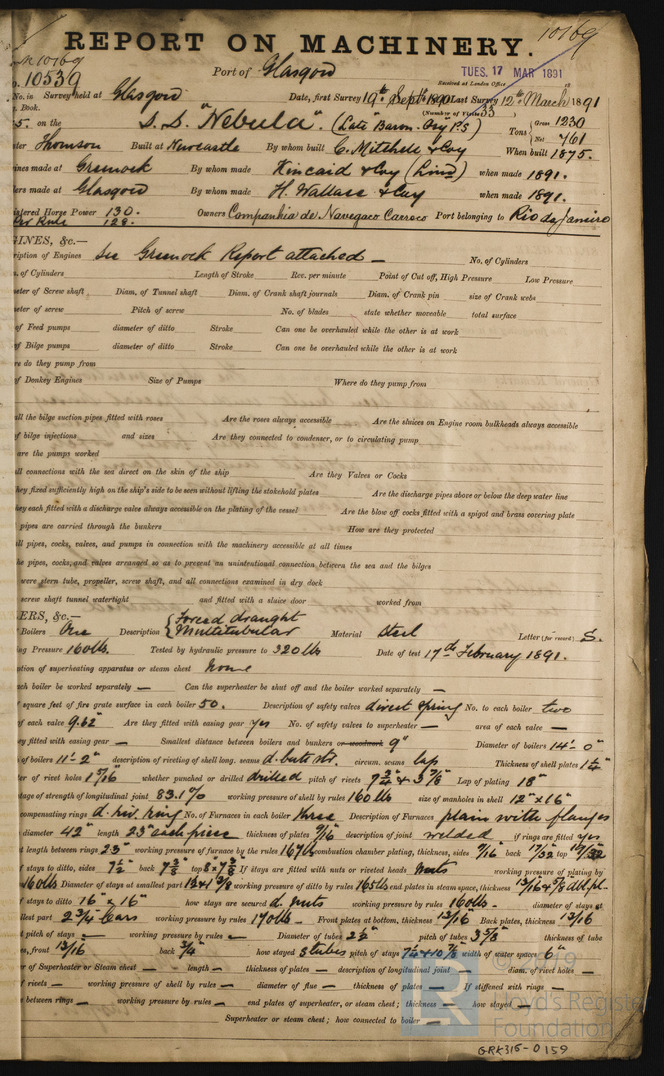 10169
REPORT ON MACHINERY.
10169
o. 10539
Port of Glasgow
TUES. 17 MAR 1891
Received at London Office 18
No. in Survey held at Glasgow Date, first Survey 19th Septr 1890 Last Survey 12th March 1891
Book. (Number of Visits 33)
5. on the S.S. "Nebula". (Late "Baron Osy P.S) Tons { Gross 1230 Net 761
ster Thomson Built at Newcastle By whom built C. Mitchell & Coy When built 1875.
ines made at Greenock By whom made Kincaid & Coy (Limd) when made 1891.
lers made at Glasgow By whom made H. Wallace & Coy when made 1891.
istered Horse Power 130. Owners Companhia de Navegaco Carroco Port belonging to Rio de Janeiro
per Rule 128.
GINES, &c.—
ription of Engines See Greenock Report attached — No. of Cylinders
. of Cylinders Length of Stroke Rev. per minute Point of Cut off, High Pressure Low Pressure
eter of Screw shaft Diam. of Tunnel shaft Diam. of Crank shaft journals Diam. of Crank pin size of Crank webs
eter of screw Pitch of screw No. of blades state whether moveable total surface
of Feed pumps diameter of ditto Stroke Can one be overhauled while the other is at work
of Bilge pumps diameter of ditto Stroke Can one be overhauled while the other is at work
re do they pump from
of Donkey Engines Size of Pumps Where do they pump from
all the bilge suction pipes fitted with roses Are the roses always accessible Are the sluices on Engine room bulkheads always accessible
of bilge injections and sizes Are they connected to condenser, or to circulating pump
are the pumps worked
all connections with the sea direct on the skin of the ship Are they Valves or Cocks
they fixed sufficiently high on the ship's side to be seen without lifting the stokehold plates Are the discharge pipes above or below the deep water line
they each fitted with a discharge valve always accessible on the plating of the vessel Are the blow off cocks fitted with a spigot and brass covering plate
pipes are carried through the bunkers How are they protected
all pipes, cocks, valves, and pumps in connection with the machinery accessible at all times
the pipes, cocks, and valves arranged so as to prevent an unintentional connection between the sea and the bilges
were stern tube, propeller, screw shaft, and all connections examined in dry dock
screw shaft tunnel watertight and fitted with a sluice door worked from
ERS, &c.—
Boilers One Description { Forced draught Multitubular Material Steel Letter (for record) S.
ing Pressure 160 lbs. Tested by hydraulic pressure to 320 lbs Date of test 17th February 1891.
ption of superheating apparatus or steam chest None
ch boiler be worked separately — Can the superheater be shut off and the boiler worked separately —
square feet of fire grate surface in each boiler 50. Description of safety valves direct spring No. to each boiler two
of each valve 9.62" Are they fitted with easing gear yes No. of safety valves to superheater — area of each valve —
ey fitted with easing gear — Smallest distance between boilers and bunkers or woodwork 9" Diameter of boilers 14'- 0"
of boilers 11'- 2" description of riveting of shell long. seams d. butt str. circum. seams lap Thickness of shell plates 1 1/4"
ter of rivet holes 1 5/16" whether punched or drilled drilled pitch of rivets 7 3/4" & 3 7/8" Lap of plating 18"
tage of strength of longitudinal joint 83.1% working pressure of shell by rules 160 lbs size of manholes in shell 12" x 16"
compensating rings d. riv. ring No. of Furnaces in each boiler three Description of Furnaces plain with flanges
diameter 42" length 23" each piece thickness of plates 9/16" description of joint welded if rings are fitted yes
t length between rings 23" working pressure of furnace by the rules 167 lbs combustion chamber plating, thickness, sides 9/16" back 17/32 top 19/32
f stays to ditto, sides 7 1/2" back 7 3/8" top 8 x 7 3/8 If stays are fitted with nuts or riveted heads Nuts working pressure of plating by
160 lbs Diameter of stays at smallest part 1 3/4 & 1 3/8 working pressure of ditto by rules 165 lbs end plates in steam space, thickness 13/16 & 5/8 dbl. pl.
f stays to ditto 16" x 16" how stays are secured d. nuts working pressure by rules 160 lbs. diameter of stays at
llest part 2 3/4 bars working pressure by rules 170 lbs. Front plates at bottom, thickness 13/16 Back plates, thickness 13/16
t pitch of stays — working pressure by rules — Diameter of tubes 2 1/2" pitch of tubes 3 5/8" thickness of tube
es, front 13/16 back 3/4" how stayed S tubes pitch of stays 7 1/4 & 10 7/8 width of water spaces 6"
er of Superheater or Steam chest — length — thickness of plates — description of longitudinal joint — diam. of rivet holes —
f rivets — working pressure of shell by rules — diameter of flue — thickness of plates — If stiffened with rings —
e between rings — working pressure by rules — end plates of superheater, or steam chest; thickness — how stayed —
Superheater or steam chest; how connected to boiler —
© 2019
Lloyd's Register
Foundation
GRK315-0159